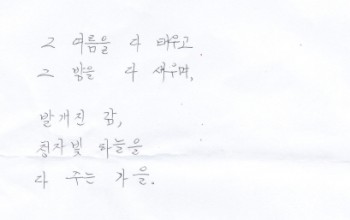 그 여름을 다 태우고
그 밤을 다 새우며,
발개진 감,
청자빛 하늘을
다 주는 가을.